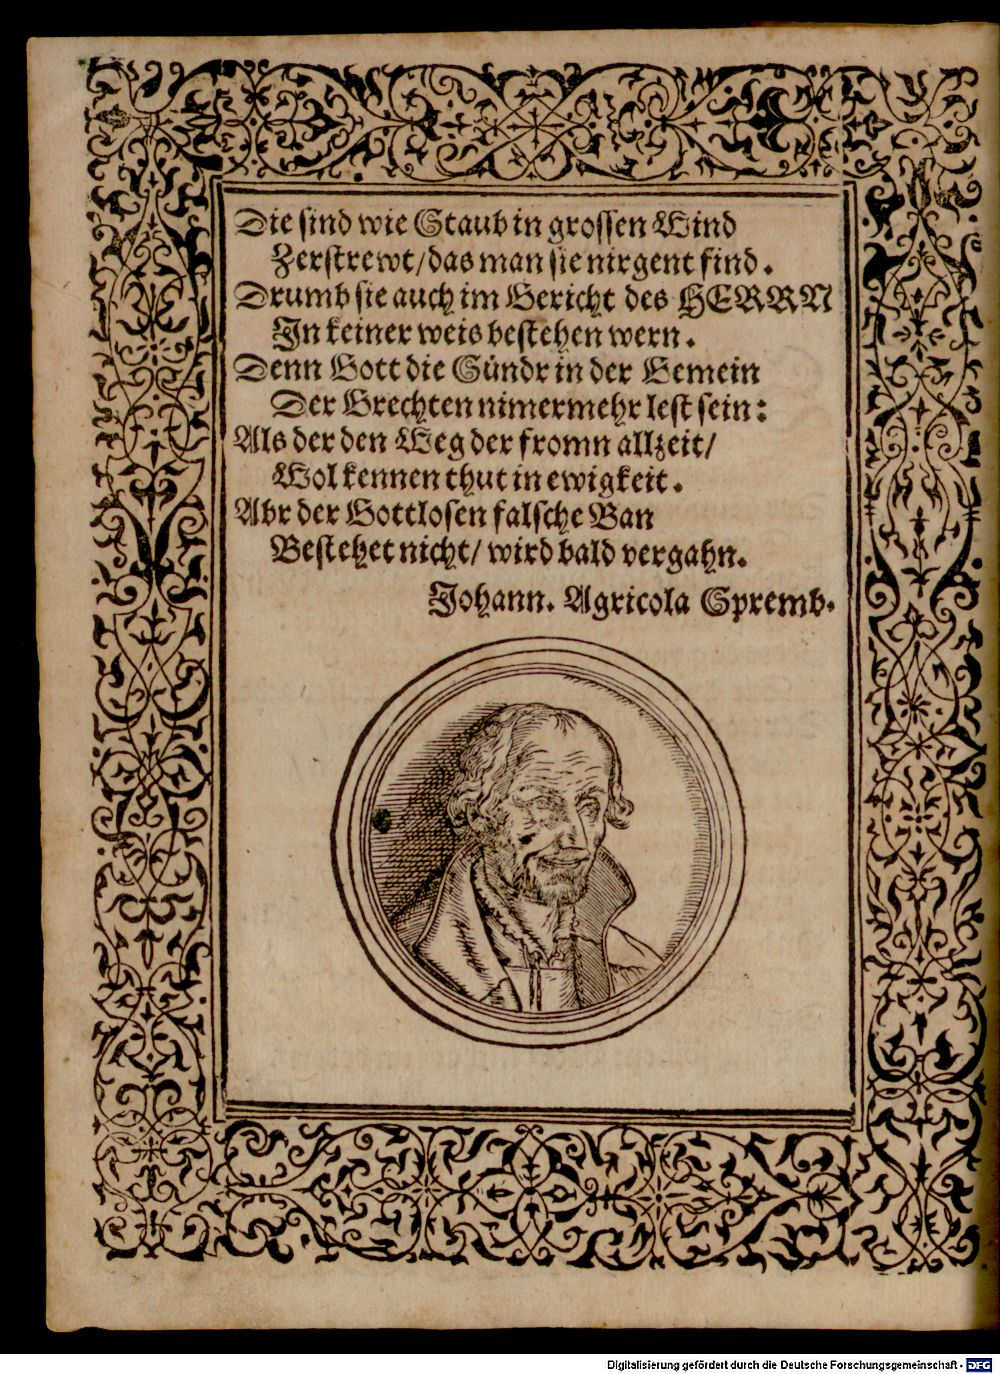 Die sind wie Staub in grossen Wind
Zerstrewt/ das man sie nirgent find.
Drumb sie auch im Gericht des HERRN
In keiner weis bestehen wern.
Denn Gott die Sündr in der Gemein
Der Grechten nimermehr lest sein:
Als der den Weg der fromn allzeit/
Wol kennen thut in ewigkeit.
Abr der Gottlosen falsche Ban
Bestehet nicht/ wird bald vergahn.
Johann. Agricola Spremb.
Digitalisierung gefördert durch die Deutsche Forschungsgemeinschaft - DFG